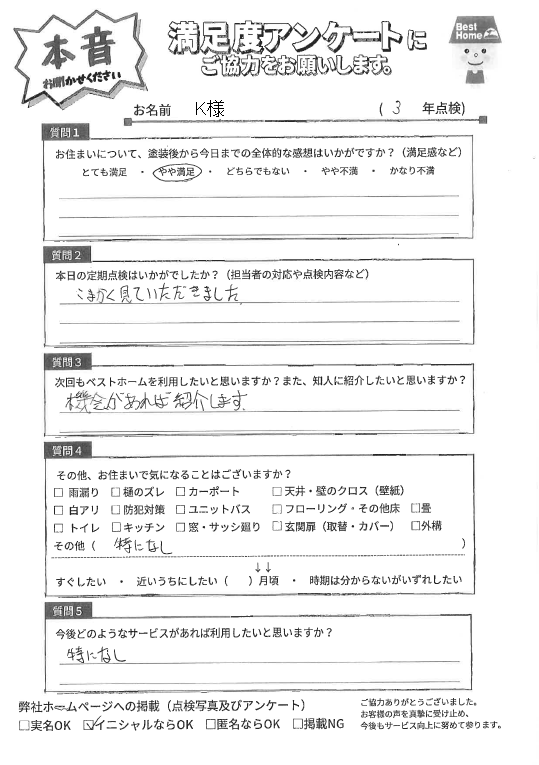 本音
お聞かせください
満足度アンケートに
ご協力をお願いします。
Best
Home
お名前 K様 ( 3 年点検)
質問1
お住まいについて、塗装後から今日までの全体的な感想はいかがですか？（満足感など）
とても満足 ・ やや満足 ・ どちらでもない ・ やや不満 ・ かなり不満
質問2
本日の定期点検はいかがでしたか？（担当者の対応や点検内容など）
こまかく見ていただきました。
質問3
次回もベストホームを利用したいと思いますか？また、知人に紹介したいと思いますか？
機会があれば紹介します。
質問4
その他、お住まいで気になることはございますか？
□ 雨漏り □ 樋のズレ □ カーポート □ 天井・壁のクロス（壁紙）
□ 白アリ □ 防犯対策 □ ユニットバス □ フローリング・その他床 □畳
□ トイレ □キッチン □ 窓・サッシ廻り □ 玄関扉（取替・カバー） □外構
その他（ 特になし ）
↓↓
すぐしたい ・ 近いうちにしたい（ ）月頃 ・ 時期は分からないがいずれしたい
質問5
今後どのようなサービスがあれば利用したいと思いますか？
特になし
弊社ホームページへの掲載（点検写真及びアンケート）
□実名OK ☑イニシャルならOK □匿名ならOK □掲載NG
ご協力ありがとうございました。
お客様の声を真摯に受け止め、
今後もサービス向上に努めて参ります。